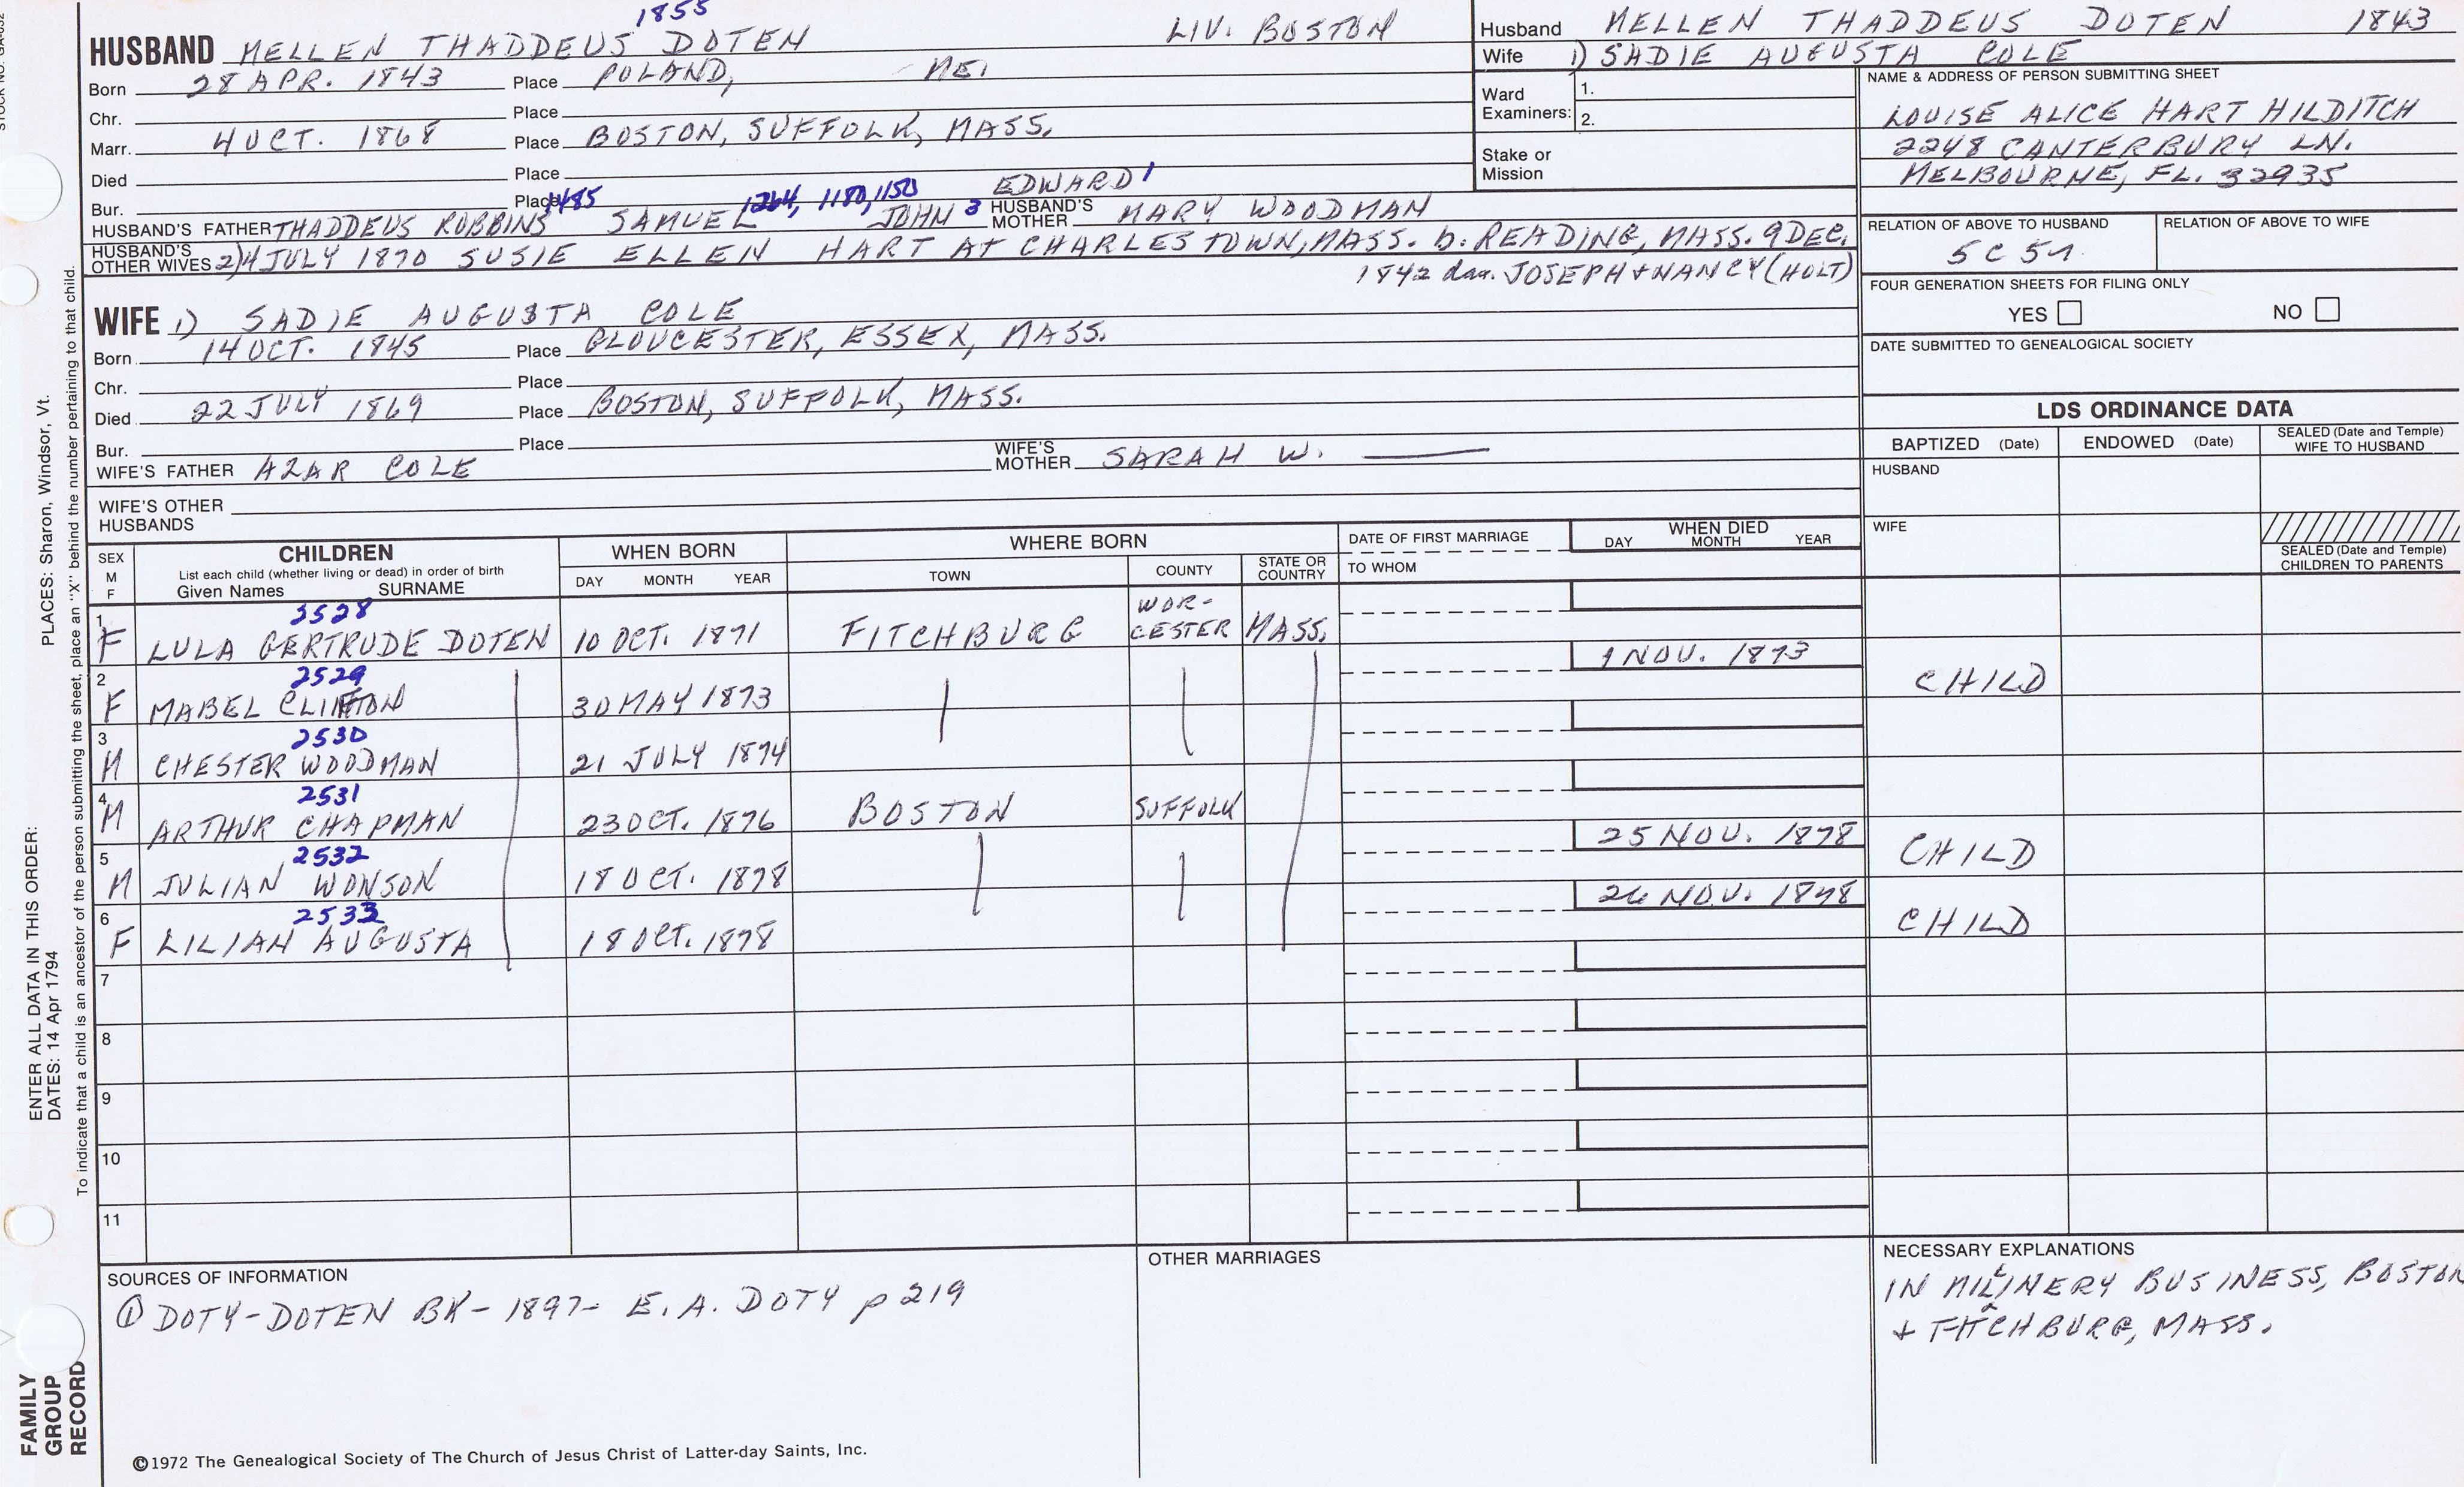 1855
HUSBAND MELLEN THADDEUS DOTEN LIV. BOSTON
Born 28 APR. 1843 Place POLAND, ME.
Chr. Place
Marr. 4 OCT. 1868 Place BOSTON, SUFFOLK, MASS.
Died Place
Bur. Place 1485 1264, 1180, 1150 EDWARD 1
HUSBAND'S FATHER THADDEUS ROBBINS SAMUEL JOHN 3 HUSBAND'S MOTHER MARY WOODMAN
HUSBAND'S OTHER WIVES 2) 4 JULY 1870 SUSIE ELLEN HART AT CHARLESTOWN, MASS. b. READING, MASS. 9 DEC.
1842 dau. JOSEPH + NANCY (HOLT)
WIFE 1) SADIE AUGUSTA COLE
Born 14 OCT. 1845 Place GLOUCESTER, ESSEX, MASS.
Chr. Place
Died 22 JULY 1869 Place BOSTON, SUFFOLK, MASS.
Bur. Place
WIFE'S FATHER AZAR COLE WIFE'S MOTHER SARAH W. ——
WIFE'S OTHER HUSBANDS
Husband MELLEN THADDEUS DOTEN 1843
Wife 1) SADIE AUGUSTA COLE
Ward Examiners: 1.
2.
Stake or Mission
NAME & ADDRESS OF PERSON SUBMITTING SHEET
LOUISE ALICE HART HILDITCH
2248 CANTERBURY LN.
MELBOURNE, FL. 32935
RELATION OF ABOVE TO HUSBAND RELATION OF ABOVE TO WIFE
5 C 5
FOUR GENERATION SHEETS FOR FILING ONLY
YES NO
DATE SUBMITTED TO GENEALOGICAL SOCIETY
LDS ORDINANCE DATA
BAPTIZED (Date) ENDOWED (Date) SEALED (Date and Temple) WIFE TO HUSBAND
HUSBAND
WIFE
SEALED (Date and Temple) CHILDREN TO PARENTS
SEX M F CHILDREN WHEN BORN WHERE BORN DATE OF FIRST MARRIAGE WHEN DIED
List each child (whether living or dead) in order of birth
Given Names SURNAME DAY MONTH YEAR TOWN COUNTY STATE OR COUNTRY TO WHOM DAY MONTH YEAR
2528
1 F LULA GERTRUDE DOTEN 10 OCT. 1871 FITCHBURG WOR-CESTER MASS.
2529
2 F MABEL CLIFTON 30 MAY 1873 1 NOV. 1873 CHILD
2530
3 M CHESTER WOODMAN 21 JULY 1874
2531
4 M ARTHUR CHAPMAN 23 OCT. 1876 BOSTON SUFFOLK
2532
5 M JULIAN WONSON 18 OCT. 1878 25 NOV. 1878 CHILD
2533
6 F LILIAN AUGUSTA 18 OCT. 1878 26 NOV. 1878 CHILD
7
8
9
10
11
SOURCES OF INFORMATION
① DOTY-DOTEN BK- 1897- E. A. DOTY p 219
OTHER MARRIAGES
NECESSARY EXPLANATIONS
IN MILINERY BUSINESS, BOSTON
+ FITCHBURG, MASS.
©1972 The Genealogical Society of The Church of Jesus Christ of Latter-day Saints, Inc.
PLACES: Sharon, Windsor, Vt.
ENTER ALL DATA IN THIS ORDER:
DATES: 14 Apr 1794
To indicate that a child is an ancestor of the person submitting the sheet, place an "X" behind the number pertaining to that child.
FAMILY
GROUP
RECORD